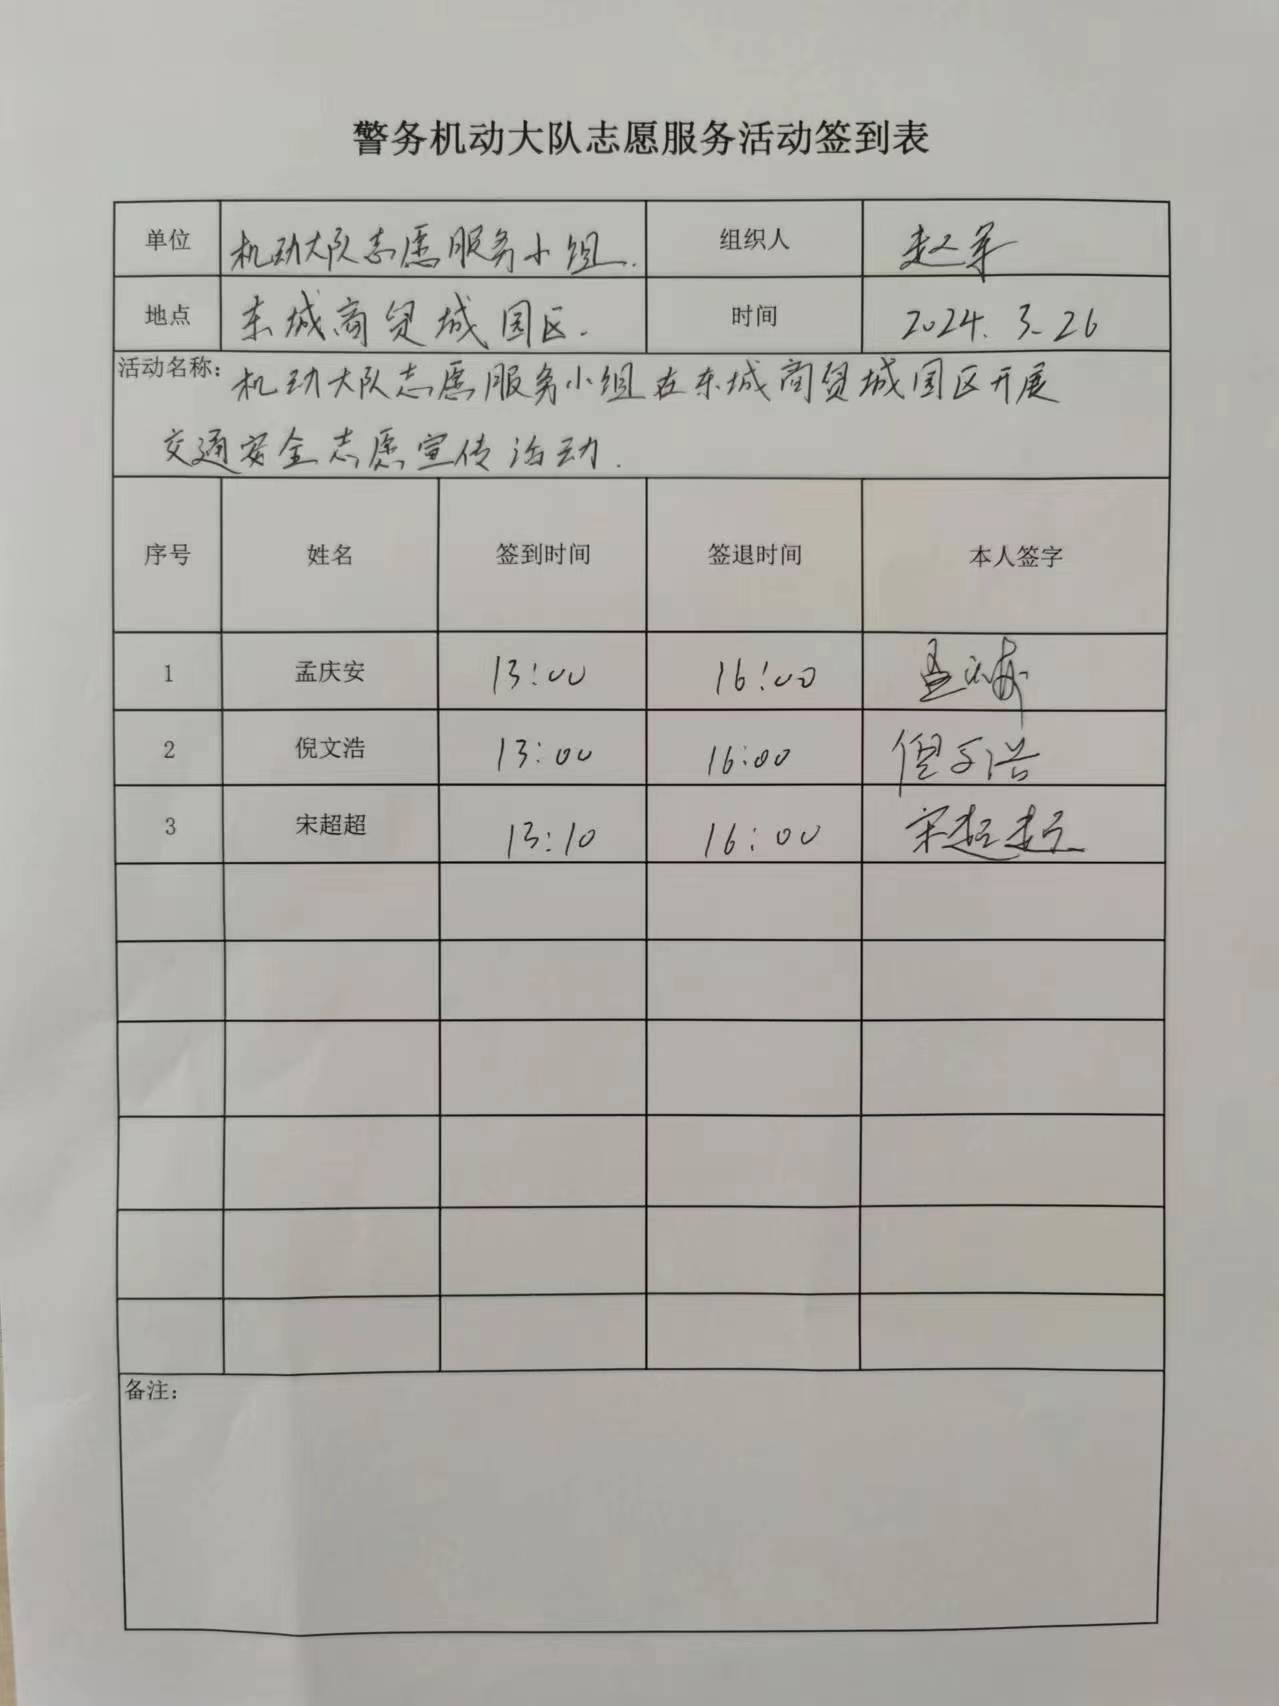 警务机动大队志愿服务活动签到表
单位 机动大队志愿服务小组. 组织人 赵军
地点 东城商贸城园区. 时间 2024.3.26
活动名称：机动大队志愿服务小组在东城商贸城园区开展
交通安全志愿宣传活动.
序号 姓名 签到时间 签退时间 本人签字
1 孟庆安 13:00 16:00
2 倪文浩 13:00 16:00 倪文浩
3 宋超超 13:10 16:00 宋超超
备注：